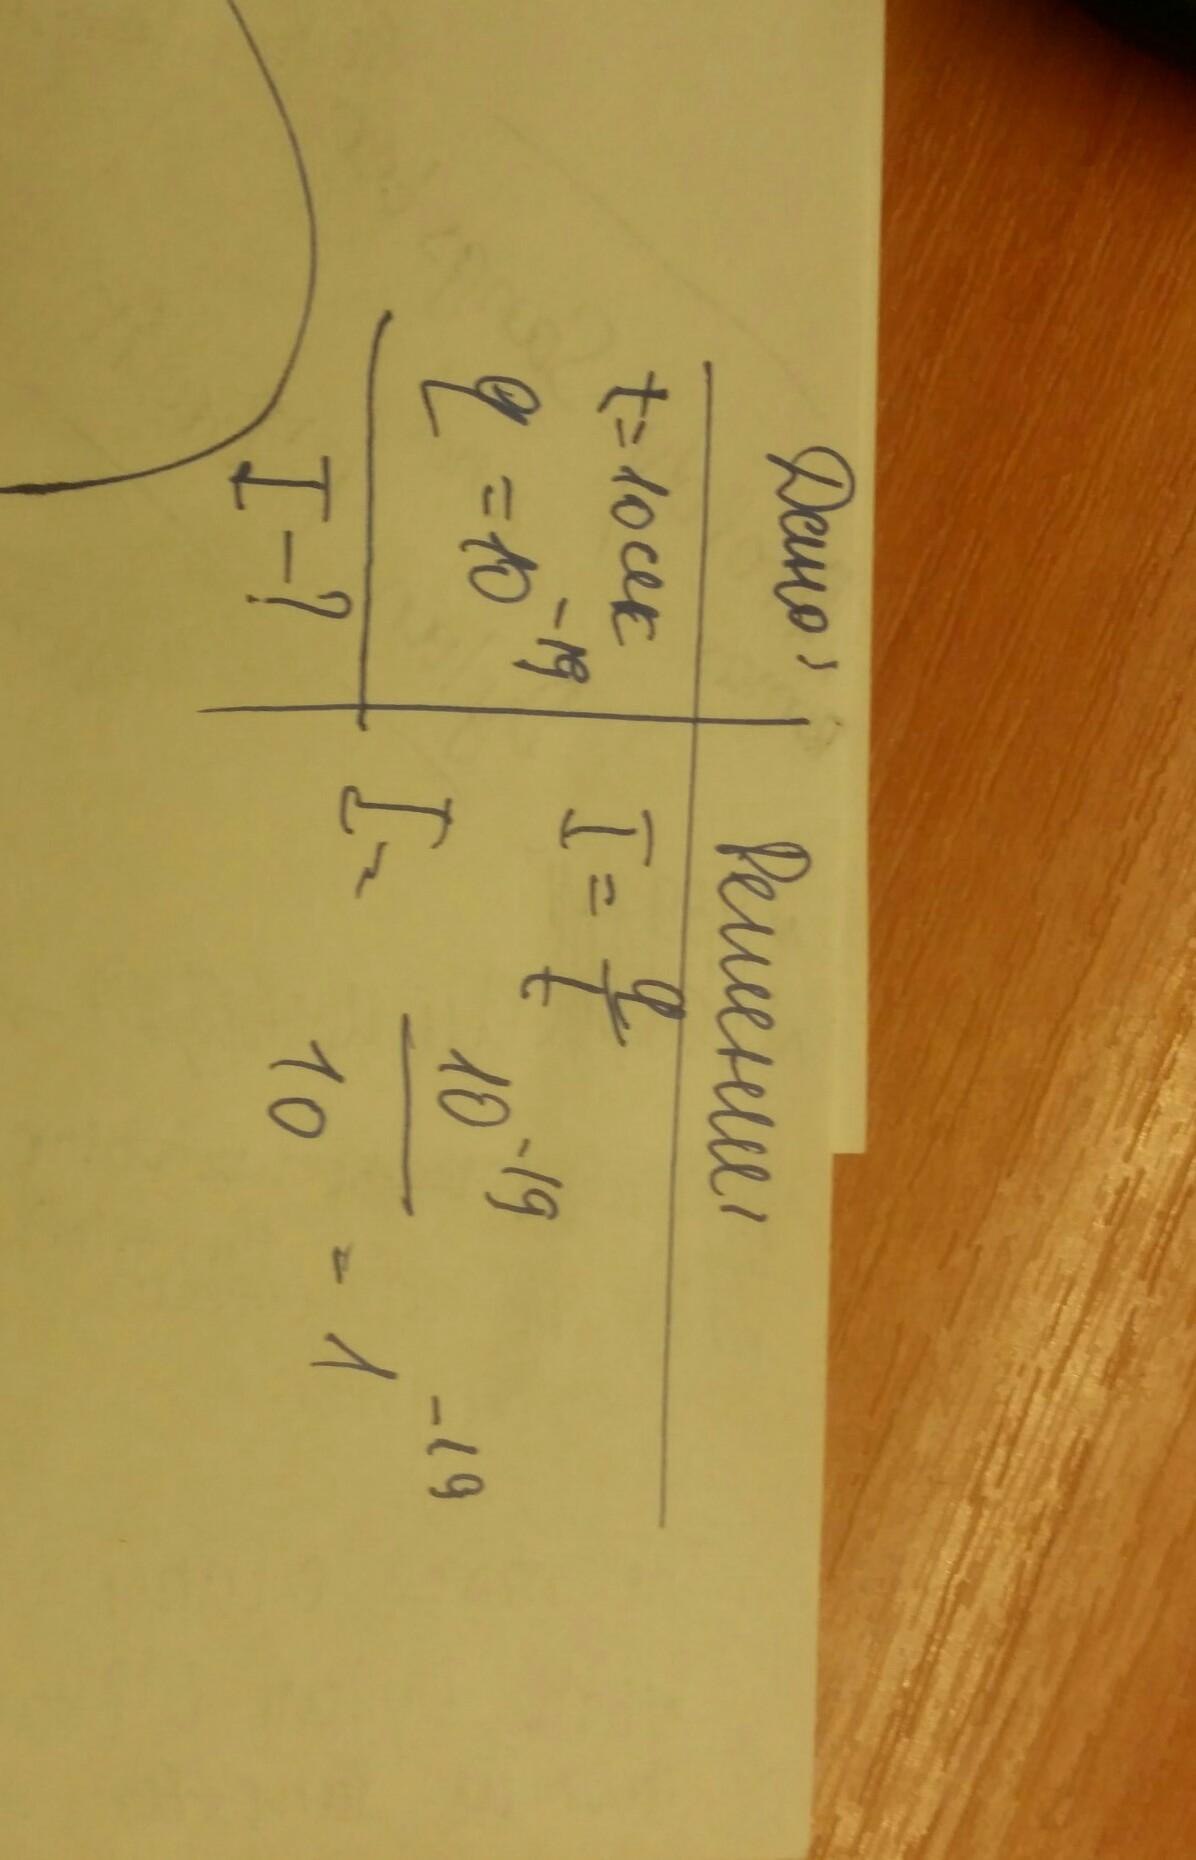 Дано:
t=10сек
q=10^-19
I-?
Решение:
I=q/t
I=10^-19/10=1^-19